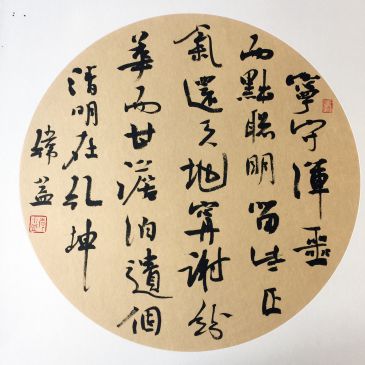 寧守渾噩
而黜聰明留些正
氣還天地寧謝紛
華而甘澹泊遺個
清明在乾坤